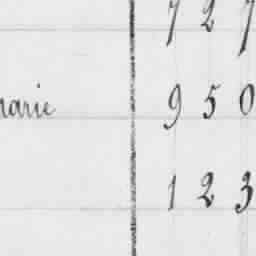 7 2 7
marie 9 5 0
1 2 3